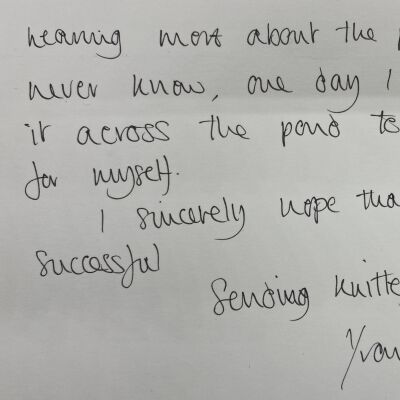 hearing more about the
never know, one day I
it across the pond to
for myself.
I sincerely hope tha
successful
Sending knitte
Yvon